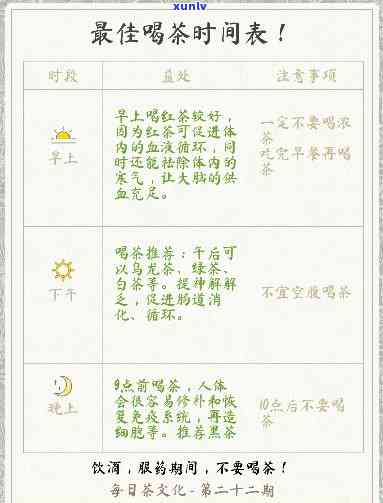 xunlv
最佳喝茶时间表！
时段
益处
注意事项
早上
早上喝红茶较好，
因为红茶可促进体
内的血液循环，同
时还能祛除体内的
寒气，让大脑的供
血充足。
一定不要喝浓
茶
吃完早餐再喝
茶
下午
喝茶推荐：午后可
以乌龙茶、绿茶、
白茶等。提神解解
乏，促进肠道消
化、循环。
不宜空腹喝茶
晚上
9点前喝茶，人体
会很容易修补和恢
复免疫系统，再造
细胞等。推荐黑茶
10点后不要喝
茶
饮酒，服药期间，不要喝茶！
每日茶文化-第二十二期